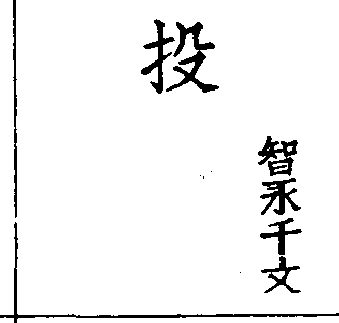 投
智永千文